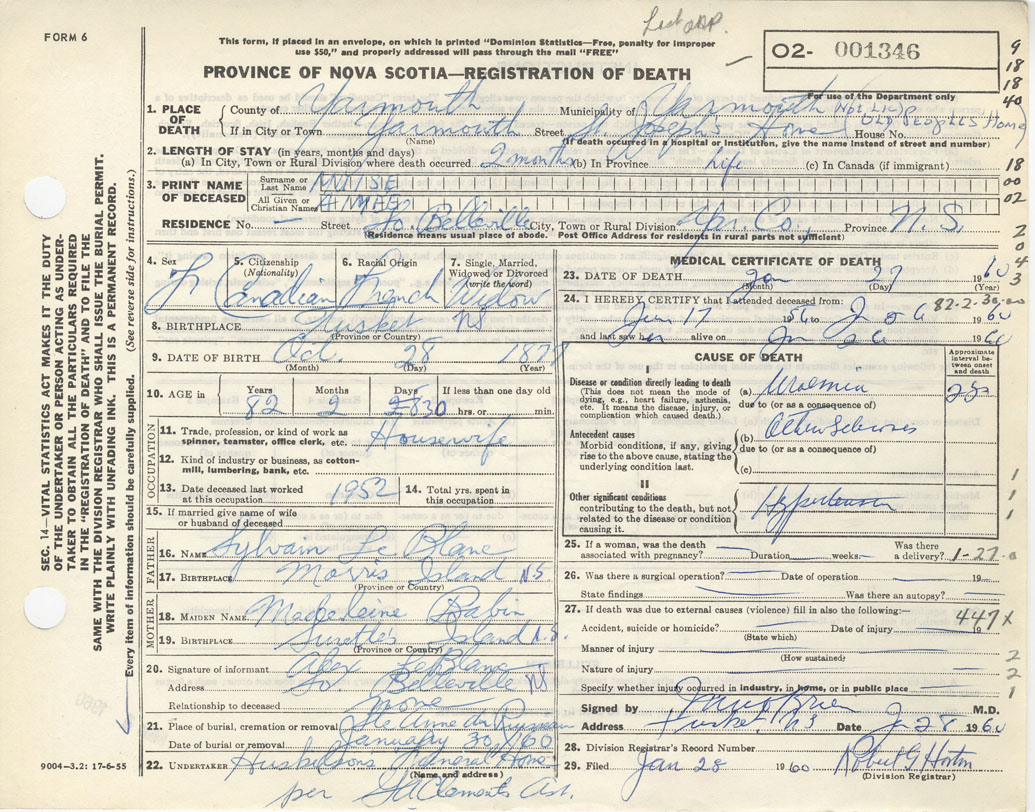 Lieut app.
FORM 6
This form, if placed in an envelope, on which is printed "Dominion Statistics—Free, penalty for improper
use $50," and properly addressed will pass through the mail "FREE"
PROVINCE OF NOVA SCOTIA—REGISTRATION OF DEATH
O2- 001346
For use of the Department only
9
18
18
40
1. PLACE OF DEATH
County of Yarmouth Municipality of Yarmouth (Not Lic'd
If in City or Town Yarmouth Street St. Joseph's Home House No. OLD PEOPLES HOME
(Name) (If death occurred in a hospital or institution, give the name instead of street and number)
2. LENGTH OF STAY (in years, months and days)
(a) In City, Town or Rural Division where death occurred 2 months (b) In Province Life (c) In Canada (if immigrant) 18
3. PRINT NAME OF DECEASED
Surname or Last Name 00
All Given or Christian Names 02
RESIDENCE No. — Street So. Belleville City, Town or Rural Division Yar. Co, Province N.S.
(Residence means usual place of abode. Post Office Address for residents in rural parts not sufficient)
2
0
4
3
SEC. 14—VITAL STATISTICS ACT MAKES IT THE DUTY
OF THE UNDERTAKER OR PERSON ACTING AS UNDER-
TAKER TO OBTAIN ALL THE PARTICULARS REQUIRED
IN THE "REGISTRATION OF DEATH" AND TO FILE THE
SAME WITH THE DIVISION REGISTRAR WHO SHALL ISSUE THE BURIAL PERMIT.
WRITE PLAINLY WITH UNFADING INK. THIS IS A PERMANENT RECORD.
Every item of information should be carefully supplied. (See reverse side for instructions.)
4. Sex F
5. Citizenship (Nationality) Canadian
6. Racial Origin French
7. Single, Married, Widowed or Divorced (write the word) Widow
8. BIRTHPLACE Tusket NS
(Province or Country)
9. DATE OF BIRTH Oct. 28 1877
(Month) (Day) (Year)
10. AGE in Years Months Days If less than one day old
82 2 30 hrs. or min.
OCCUPATION
11. Trade, profession, or kind of work as
spinner, teamster, office clerk, etc. Housewife
12. Kind of industry or business, as cotton-
mill, lumbering, bank, etc.
13. Date deceased last worked
at this occupation 1952
14. Total yrs. spent in
this occupation
15. If married give name of wife
or husband of deceased
FATHER
16. NAME Sylvain Le Blanc
17. BIRTHPLACE Morris Island N.S.
(Province or Country)
MOTHER
18. MAIDEN NAME Madeleine Babin
19. BIRTHPLACE Surette's Island N.S.
(Province or Country)
20. Signature of informant Alex LeBlanc
Address So. Belleville NS
Relationship to deceased none
21. Place of burial, cremation or removal Ste Anne du Ruisseau
Date of burial or removal January 30/60
22. UNDERTAKER Huskilson's Funeral Home
(Name and address)
per
9004-3.2: 17-6-55
MEDICAL CERTIFICATE OF DEATH
23. DATE OF DEATH Jan 27 1960
(Month) (Day) (Year)
24. I HEREBY CERTIFY that I attended deceased from: 82-2-30
Jan 17 1956 to J 26 1960
and last saw her alive on Jan 26 1960
CAUSE OF DEATH
Approximate interval between onset and death
I
Disease or condition directly leading to death
(This does not mean the mode of
dying, e.g., heart failure, asthenia,
etc. It means the disease, injury, or
complication which caused death.)
(a) Uraemia
due to (or as a consequence of)
Antecedent causes
Morbid conditions, if any, giving
rise to the above cause, stating the
underlying condition last.
(b)
due to (or as a consequence of)
(c)
II
Other significant conditions
contributing to the death, but not
related to the disease or condition
causing it.
Hypertension
1
1
1
25. If a woman, was the death
associated with pregnancy? Duration weeks. Was there
a delivery? 1-27
26. Was there a surgical operation? Date of operation 19
State findings Was there an autopsy?
27. If death was due to external causes (violence) fill in also the following:— 447x
Accident, suicide or homicide? Date of injury 19
(State which)
Manner of injury 2
(How sustained)
Nature of injury 2
Specify whether injury occurred in industry, in home, or in public place 1
Signed by M.D.
Address Tusket NS Date J 28 1960
28. Division Registrar's Record Number
29. Filed Jan 28 1960 Robert G Horton
(Division Registrar)